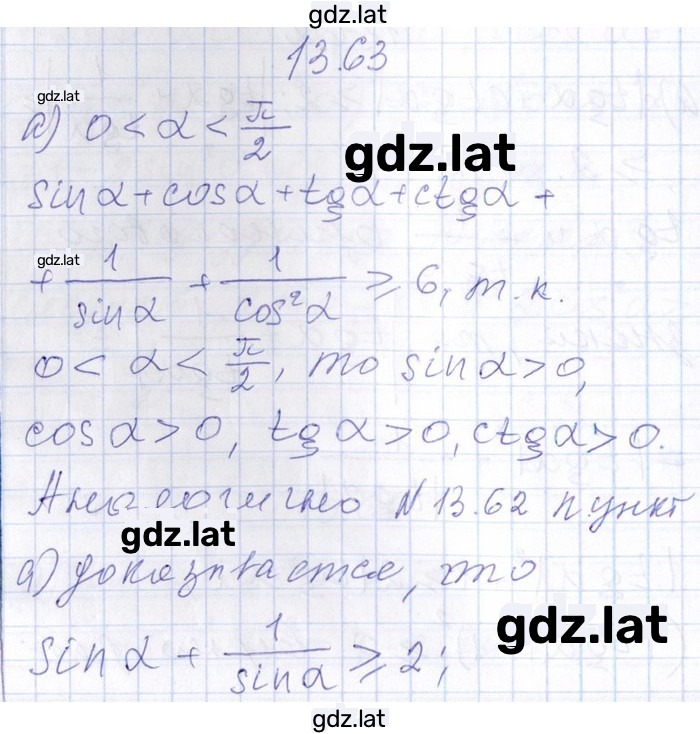 gdz.lat
13.63
gdz.lat
а) 0 < α < π/2
gdz.lat
sin α + cos α + tg α + ctg α +
gdz.lat
+ 1/sin α + 1/cos² α ⩾ 6, т.к.
0 < α < π/2, то sin α > 0,
cos α > 0, tg α > 0, ctg α > 0.
Аналогично N 13.62 пункт
gdz.lat
а) доказывается, что
gdz.lat
sin α + 1/sin α ⩾ 2;
gdz.lat